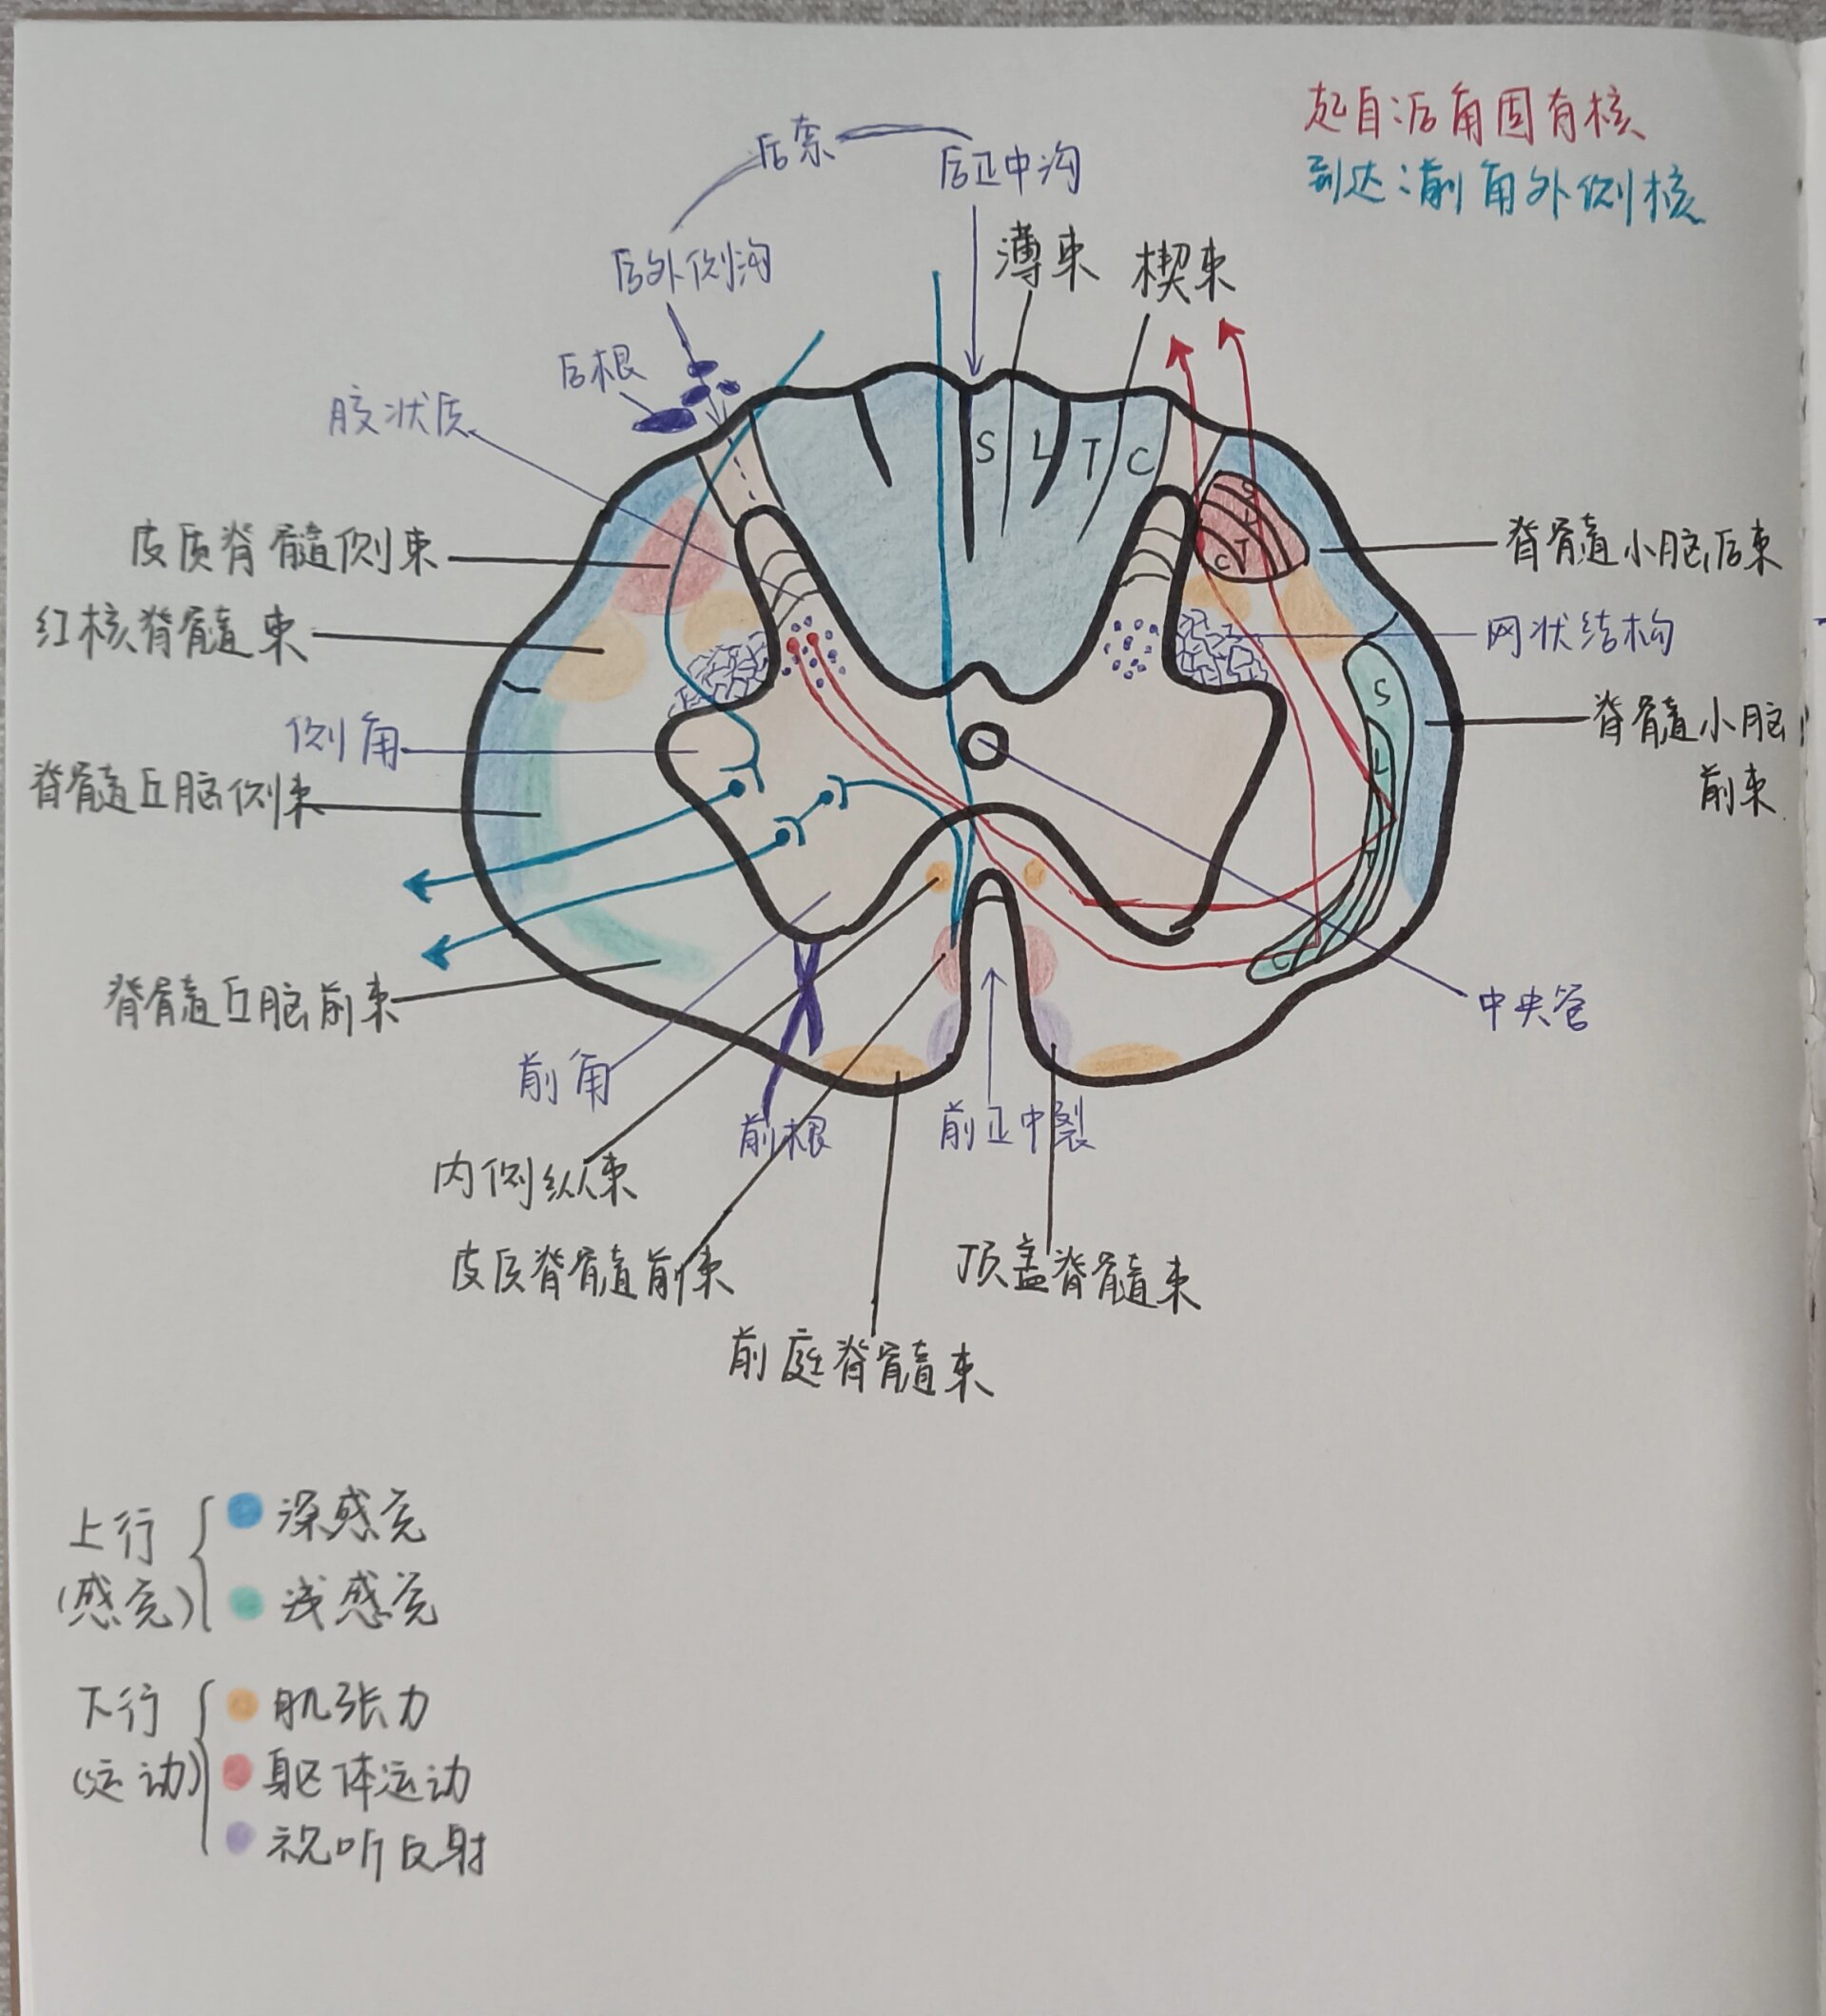 起自:后角固有核
到达:前角外侧核
后索
后正中沟
后外侧沟
薄束
楔束
后根
胶状质
S
L
T
C
皮质脊髓侧束
S
L
T
C
脊髓小脑后束
红核脊髓束
网状结构
侧角
S
L
T
C
脊髓小脑
前束
脊髓丘脑侧束
脊髓丘脑前束
中央管
前角
前根
前正中裂
内侧纵束
皮质脊髓前束
顶盖脊髓束
前庭脊髓束
上行
(感觉)
深感觉
浅感觉
下行
(运动)
肌张力
躯体运动
视听反射